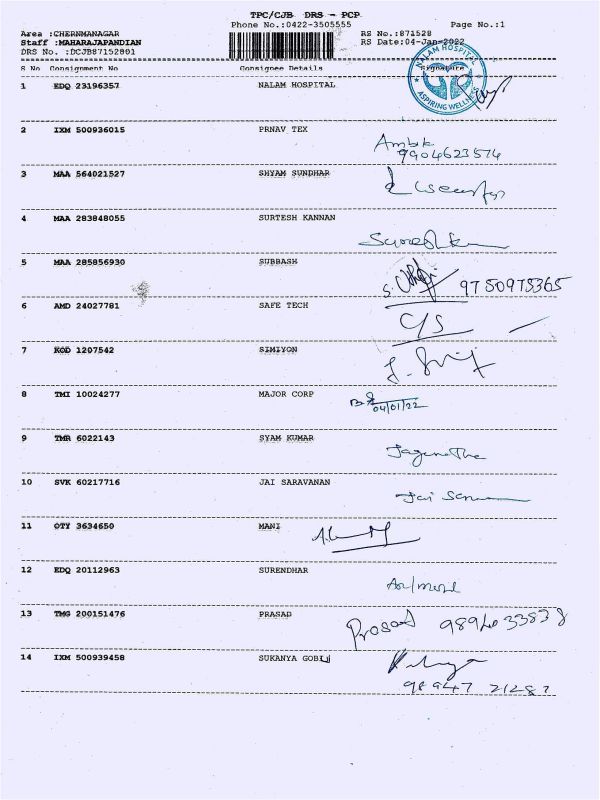 TPC/CJB DRS - PCP
Phone No.:0422-3505555 Page No.:1
Area :CHERNMANAGAR RS No.:871528
Staff :MAHARAJAPANDIAN RS Date:04-Jan-2022
DRS No. :DCJB87152801
S No Consignment No Consignee Details Signature
NALAM HOSPITAL
ASPIRING WELLNESS
1 EDQ 23196357 NALAM HOSPITAL
2 IXM 500936015 PRNAV TEX
9904623574
3 MAA 564021527 SHYAM SUNDHAR
4 MAA 283848055 SURTESH KANNAN
5 MAA 285856930 SUBBASH
9750975365
6 AMD 24027781 SAFE TECH
C/S
7 KOD 1207542 SIMIYON
8 TMI 10024277 MAJOR CORP
04/01/22
9 TMR 6022143 SYAM KUMAR
10 SVK 60217716 JAI SARAVANAN
11 OTY 3634650 MANI
12 EDQ 20112963 SURENDHAR
13 TMG 200151476 PRASAD
Prasad
14 IXM 500939458 SUKANYA GOBI
98947 21287